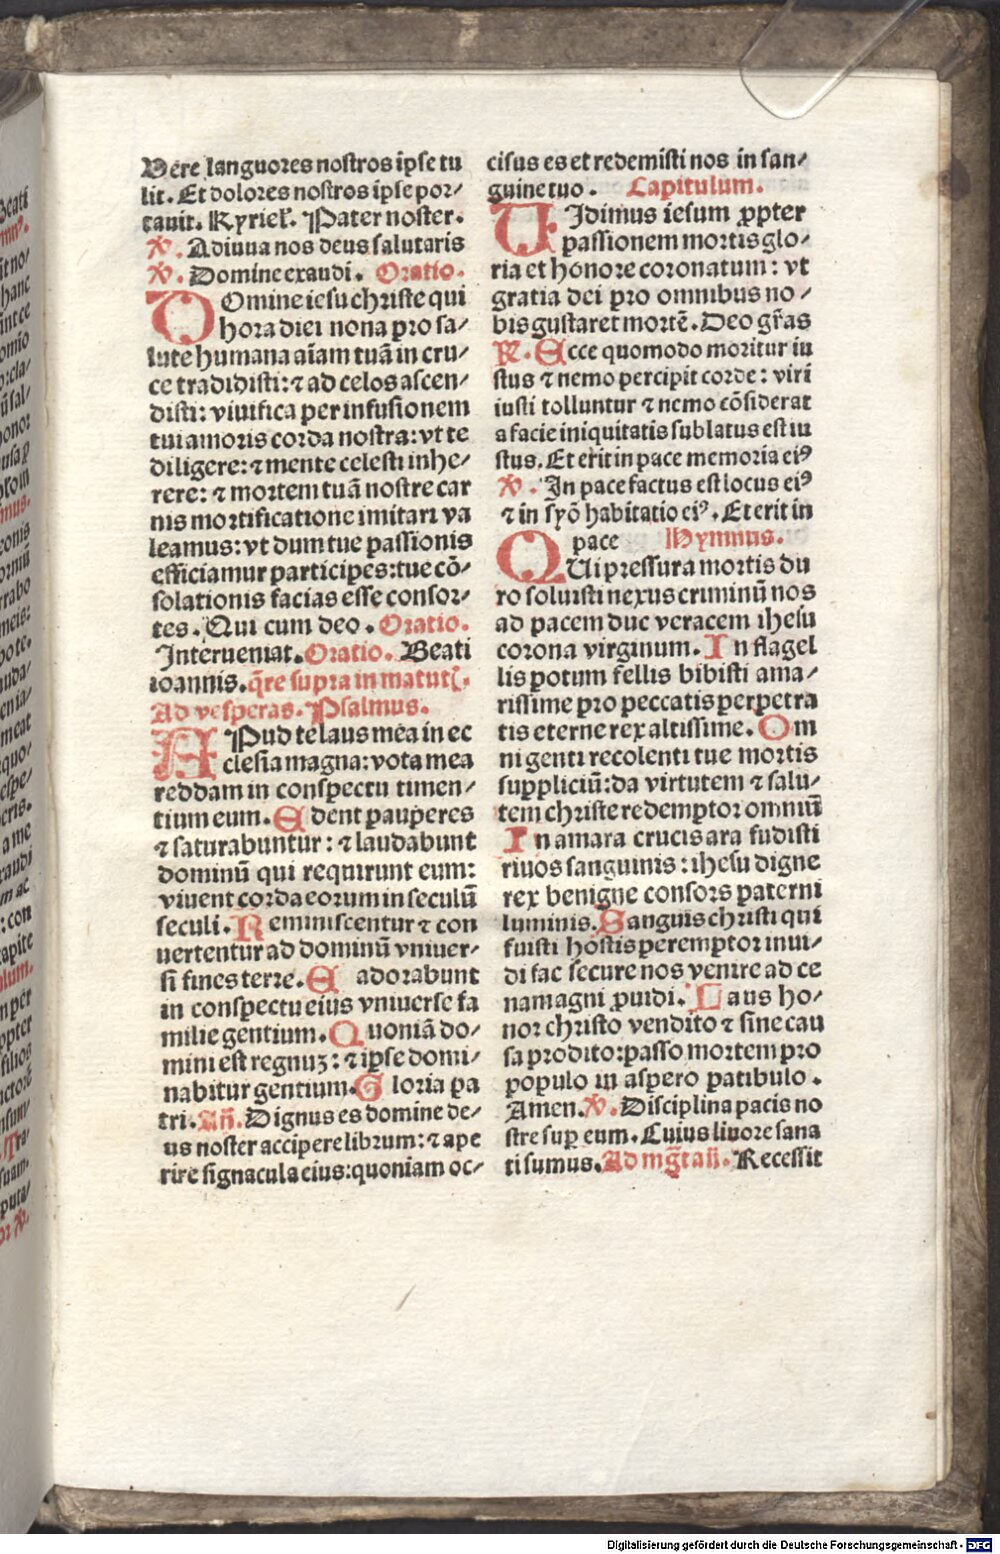 Vere languores nostros ipse tu
lit. Et dolores nostros ipse por⸗
tauit. Kyriel'. Pater noster.
℣. Adiuua nos deus salutaris
℣. Domine exaudi. Oratio.
DOmine iesu christe qui
hora diei nona pro sa⸗
lute humana aīam tuā in cru⸗
ce tradidisti: ⁊ ad celos ascen⸗
disti: viuifica per infusionem
tui amoris corda nostra: vt te
diligere: ⁊ mente celesti inhe⸗
rere: ⁊ mortem tuā nostre car
nis mortificatione imitari va
leamus: vt dum tue passionis
efficiamur participes: tue cō⸗
solationis facias esse consor⸗
tes. Qui cum deo. Oratio.
Interueniat. Oratio. Beati
ioannis. q̄re supra in matut̄.
Ad vesperas. Psalmus.
APud te laus mea in ec
clesia magna: vota mea
reddam in conspectu timen⸗
tium eum. Edent pauperes
⁊ saturabuntur: ⁊ laudabunt
dominū qui requirunt eum:
viuent corda eorum in seculū
seculi. Reminiscentur ⁊ con
uertentur ad dominū vniuer⸗
si fines terre. E adorabunt
in conspectu eius vniuerse fa
milie gentium. Quoniā do⸗
mini est regnuꝫ: ⁊ ipse domi⸗
nabitur gentium. Gloria pa
tri. Añ. Dignus es domine de⸗
us noster accipere librum: ⁊ ape
rire signacula eius: quoniam oc⸗
cisus es et redemisti nos in san⸗
guine tuo. Capitulum.
UIdimus iesum ꝓpter
passionem mortis glo⸗
ria et honore coronatum: vt
gratia dei pro omnibus no⸗
bis gustaret mortē. Deo gr̄as
℟. Ecce quomodo moritur iu
stus ⁊ nemo percipit corde: viri
iusti tolluntur ⁊ nemo cōsiderat
a facie iniquitatis sublatus est iu
stus. Et erit in pace memoria eiꝰ
℣. In pace factus est locus eiꝰ
⁊ in syō habitatio eiꝰ. Et erit in
pace Hymnus.
QUi pressura mortis du
ro soluisti nexus criminū nos
ad pacem duc veracem ihesu
corona virginum. In flagel
lis potum fellis bibisti ama⸗
rissime pro peccatis perpetra
tis eterne rex altissime. Om
ni genti recolenti tue mortis
suppliciū: da virtutem ⁊ salu⸗
tem christe redemptor omniū
In amara crucis ara fudisti
riuos sanguinis: ihesu digne
rex benigne consors paterni
luminis. Sanguis christi qui
fuisti hostis peremptor inui⸗
di fac secure nos venire ad ce
nam agni ꝓuidi. Laus ho⸗
nor christo vendito ⁊ sine cau
sa prodito: passo mortem pro
populo in aspero patibulo.
Amen. ℣. Disciplina pacis no
stre suꝑ eum. Cuius liuore sana
ti sumus. Ad mg̃t añ. Recessit
Digitalisierung gefördert durch die Deutsche Forschungsgemeinschaft - DFG